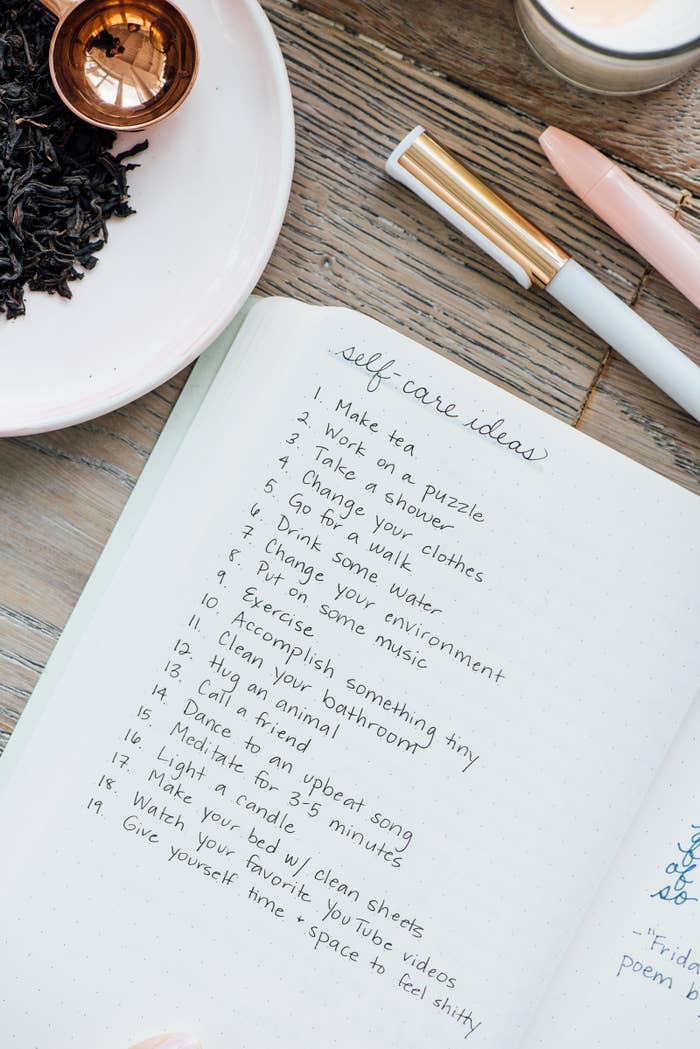 self-care ideas
1. Make tea
2. Work on a puzzle
3. Take a shower
4. Change your clothes
5. Go for a walk
6. Drink some water
7. Change your environment
8. Put on some music
9. Exercise
10. Accomplish something tiny
11. Clean your bathroom
12. Hug an animal
13. Call a friend
14. Dance to an upbeat song
15. Meditate for 3-5 minutes
16. Light a candle
17. Make your bed w/ clean sheets
18. Watch your favorite YouTube videos
19. Give yourself time + space to feel shitty
of
so
-"Frida
poem b